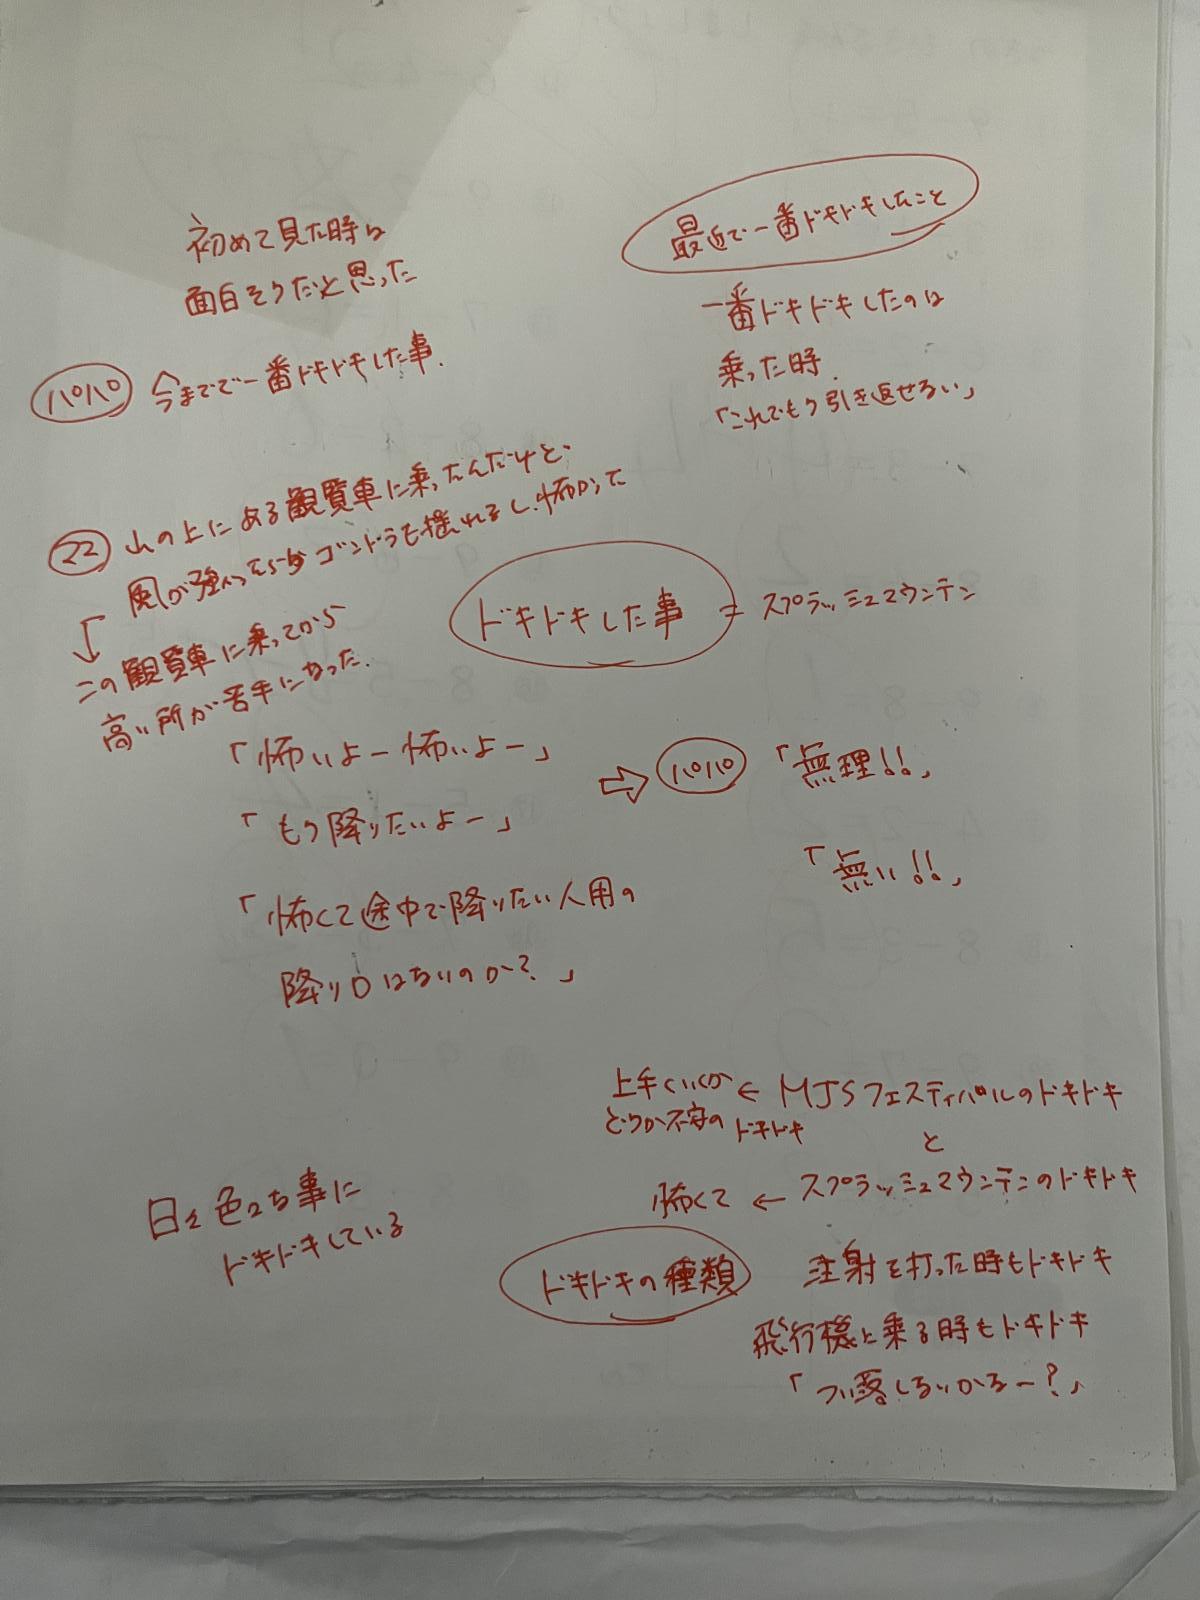 初めて見た時は
面白そうだと思った
最近で一番ドキドキしたこと
一番ドキドキしたのは
乗った時
「これでもう引き返せない」
パパ 今までで一番ドキドキした事.
22 山の上にある観覧車に乗ったんだけど、
風が強かったらゴンドラも揺れるし、怖かった
↓ この観覧車に乗ってから
高い所が苦手になった.
ドキドキした事 = スプラッシュマウンテン
「怖いよー怖いよー」
「もう降りたいよー」
⇨ パパ 「無理!!」
「怖くて途中で降りたい人用の
降り口はないのか?」
「無い!!」
上手くいくか ← MJSフェスティバルのドキドキ
どうか不安の ドキドキ
と
怖くて ← スプラッシュマウンテンのドキドキ
ドキドキの種類
注射を打った時もドキドキ
飛行機に乗る時もドキドキ
「つい落しないかなー?」
日々色々な事に
ドキドキしている